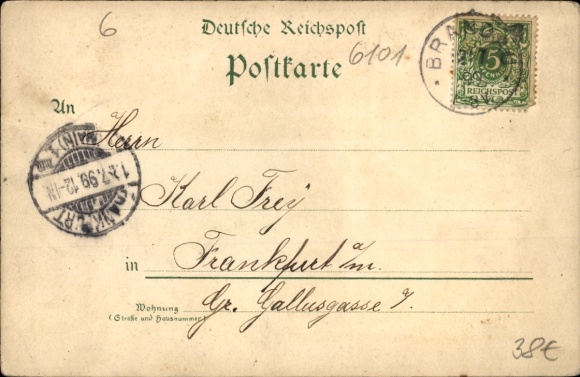 6
Deutsche Reichspost
6101
Postkarte
5
REICHSPOST
An
Herrn
1.7.99.12-1N.
Karl Frey
in Frankfurt a/m.
Wohnung
(Straße und Hausnummer)
Gr. Gallusgasse 7.
38€